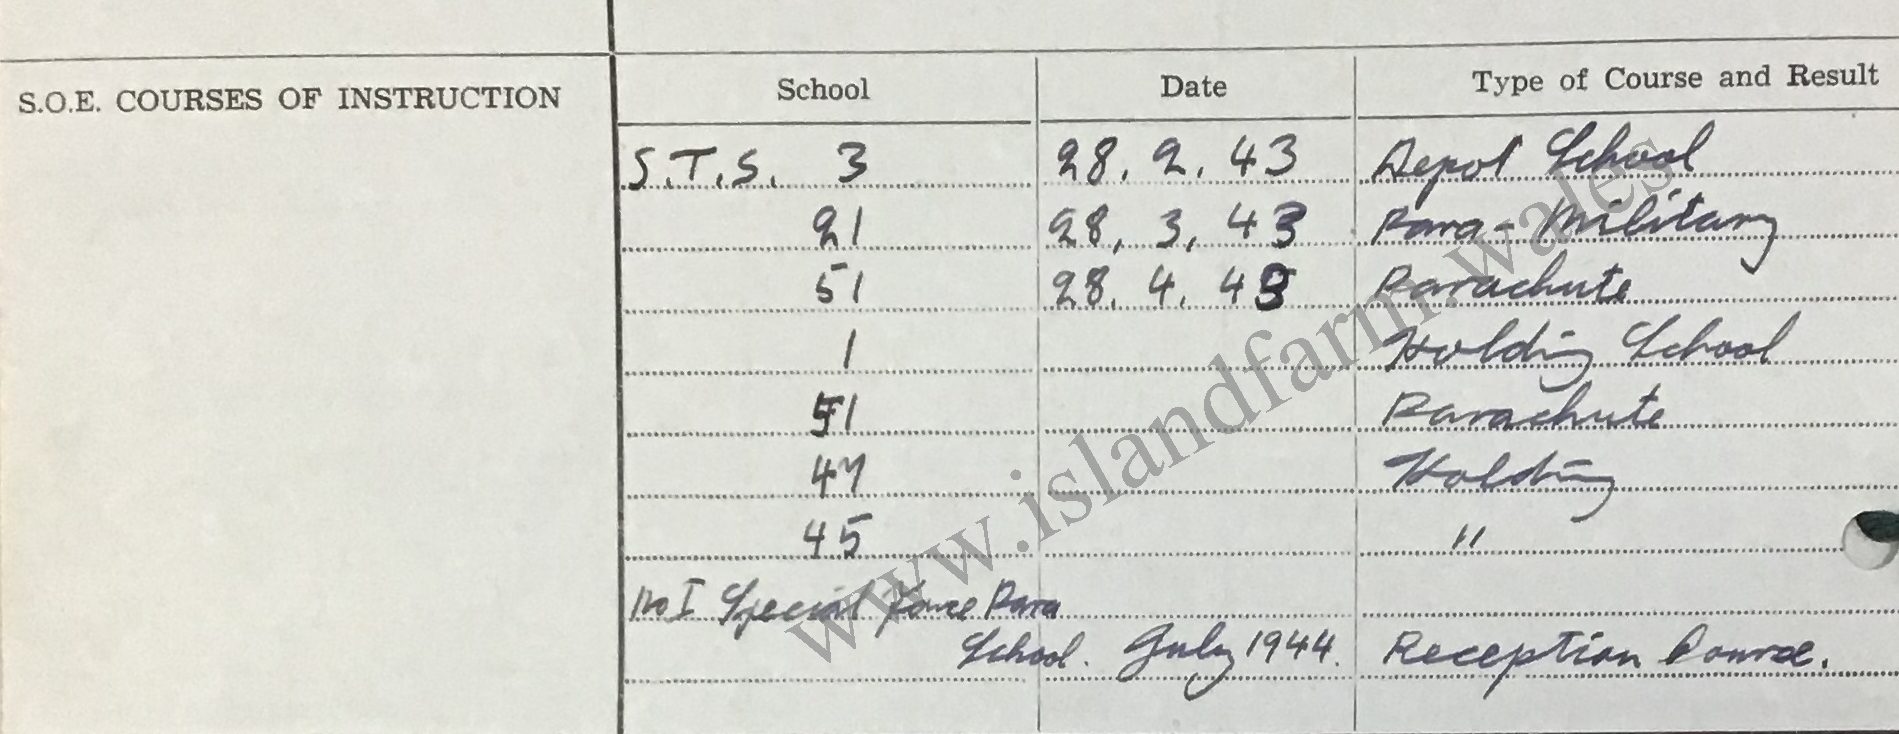 S.O.E. COURSES OF INSTRUCTION
School Date Type of Course and Result
S.T.S. 3 28. 2. 43 Depot School
21 28. 3. 43 Para-Military
51 28. 4. 43 Parachute
1 Holding School
51 Parachute
47 Holding
45 "
No I Special Force Para
School. July 1944. Reception Course.
www.islandfarm.wales